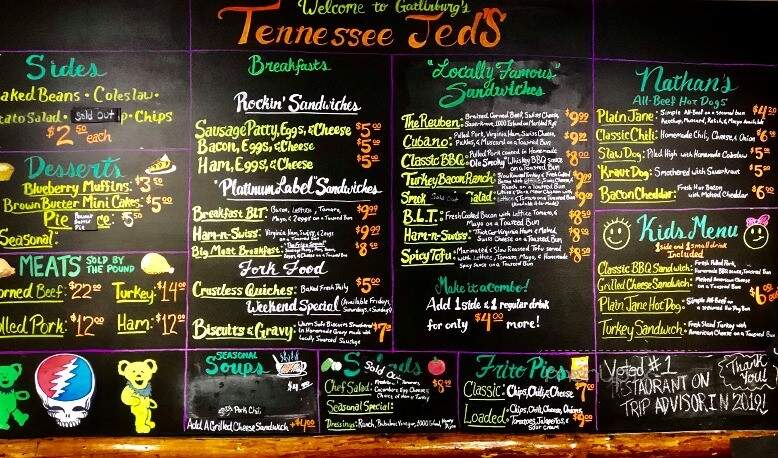 Welcome to Gatlinburg's
Tennessee Ted's
Sides
aked Beans • Coleslaw •
tato Salad • Sold Out p • Chips
$2.50 each
Desserts
Blueberry Muffins: $3.50
Brown Butter Mini Cakes: $5.00
Pie
Seasonal:
MEATS SOLD BY THE POUND
orned Beef: $22.00 Turkey: $14.00
lled Pork: $12.00 Ham: $12.00
Breakfasts
Rockin' Sandwiches
Sausage Patty, Eggs, & Cheese $5.00
Bacon, Eggs, & Cheese $5.00
Ham, Eggs, & Cheese $5.00
"Platinum Label" Sandwiches
Breakfast BLT: Bacon, Lettuce, Tomato,
Mayo & 2 eggs on a Toasted Bun
Ham-n-Swiss:
on a Toasted Bun
Big Meat Breakfast:
Fork Food
Crustless Quiches: Baked Fresh Daily $5.00
Weekend Special (Available Fridays,
Saturdays, & Sundays)
Biscuits & Gravy: Warm Soft Biscuits Smothered
in Homemade Gravy made with
Locally Sourced Sausage
"Locally Famous"
Sandwiches
The Reuben: Braised Corned Beef, Swiss Cheese,
Sauerkraut, 1000 Island on Marbled Rye
Cubano: Pulled Pork, Virginia Ham, Swiss Cheese,
Pickles, & Mustard on a Toasted Bun
Classic BBQ: Pulled Pork covered in Homemade
"Ole Smoky" Whiskey BBQ sauce
on a Toasted Bun
Turkey Bacon Ranch:
Sold Out
B.L.T.: Fresh Cooked Bacon with Lettuce, Tomato, &
Mayo on a Toasted Bun
Ham-n-Swiss:
Swiss Cheese on a Toasted Bun
Spicy Tofu: Marinated & Slow Roasted Tofu served
with Lettuce, Tomato, Mayo, & Homemade
Spicy Sauce on a Toasted Bun
Make it a combo!
Add 1 side & 1 regular drink
for only $4.00 more!
Nathan's
All-Beef Hot Dogs
Plain Jane: Simple All-Beef on a steamed bun
Ketchup, Mustard, Relish, & Mayo Available
Classic Chili: Homemade Chili, Cheese, & Onion
Slaw Dog: Piled High with Homemade Coleslaw
Kraut Dog: Smothered with Sauerkraut
Bacon Cheddar: Fresh Hot Bacon
with Melted Cheddar
Kids Menu
1 side and 1 small drink
Included
Classic BBQ Sandwich: Fresh Pulled Pork,
Homemade BBQ sauce, Toasted Bun
Grilled Cheese Sandwich: Melted American Cheese
on a Toasted Bun
Plain Jane Hot Dog: Simple All-Beef
on a Steamed Hot Dog Bun
Turkey Sandwich: Fresh Sliced Turkey with
American Cheese on a Toasted Bun
SEASONAL
Soups
Pork Chili
Add A Grilled Cheese Sandwich +$4.00
Salads
Sold Out
Chef Salad:
Seasonal Special:
Dressings: Ranch, Balsamic Vinegar, 1000 Island, Honey
Frito Pies
Classic: Chips, Chili, & Cheese
Loaded: Chips, Chili, Cheese, Onions,
Tomatoes, Jalapeños, &
Sour Cream
Voted #1
RESTAURANT ON
TRIP ADVISOR IN 2019!
Thank
You!